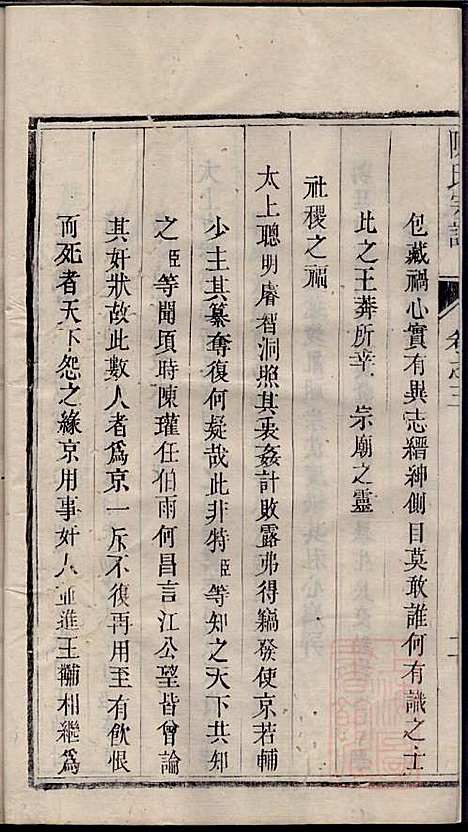 陳氏宗譜 卷之三 二
包藏禍心實有異志縉紳側目莫敢誰何有識之士
比之王莽所幸 宗廟之靈
社稷之福
太上聰明睿智洞照其衷姦計敗露弗得竊發使京若輔
少主其纂奪復何疑哉此非特臣等知之天下共知
之臣等聞頃時陳瓘任伯雨何昌言江公望皆曾論
其奸狀故此數人者爲京一斥不復再用至有飮恨
而死者天下怨之緣京用事奸人並進王黼相繼爲